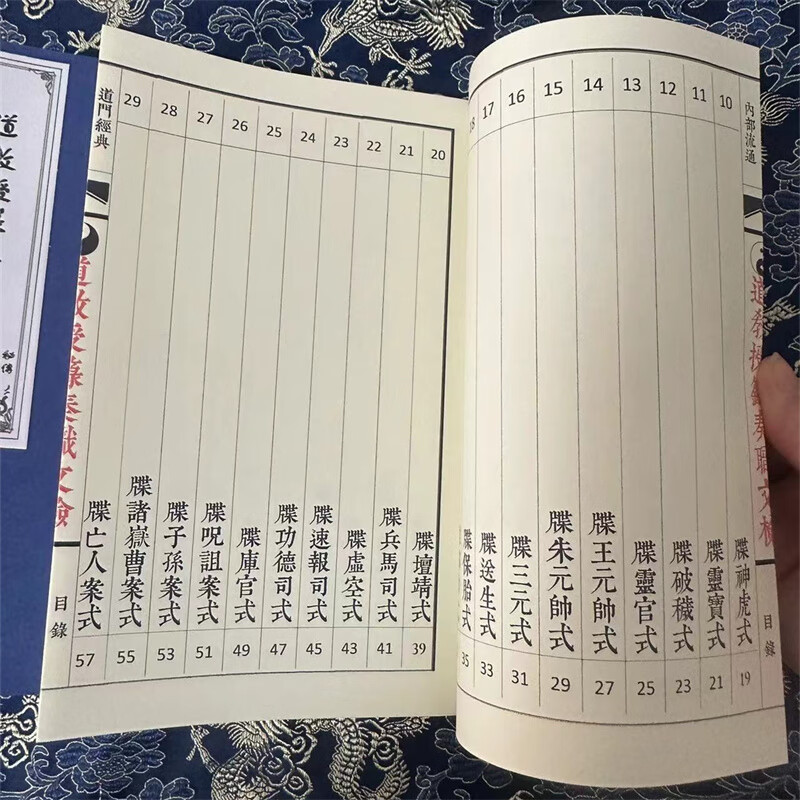 內部流通
道教授籙奏職文檢
目錄
10 牒神虎式 19
11 牒靈寶式 21
12 牒破穢式 23
13 牒靈官式 25
14 牒王元帥式 27
15 牒朱元帥式 29
16 牒三元式 31
17 牒送生式 33
18 牒保胎式 35
20 牒壇靖式 39
21 牒兵馬司式 41
22 牒虛空式 43
23 牒速報司式 45
24 牒功德司式 47
25 牒庫官式 49
26 牒呪詛案式 51
27 牒子孫案式 53
28 牒諸嶽曹案式 55
29 牒亡人案式 57
道門經典
道教授籙奏職文檢
目錄
道教授
秘傳